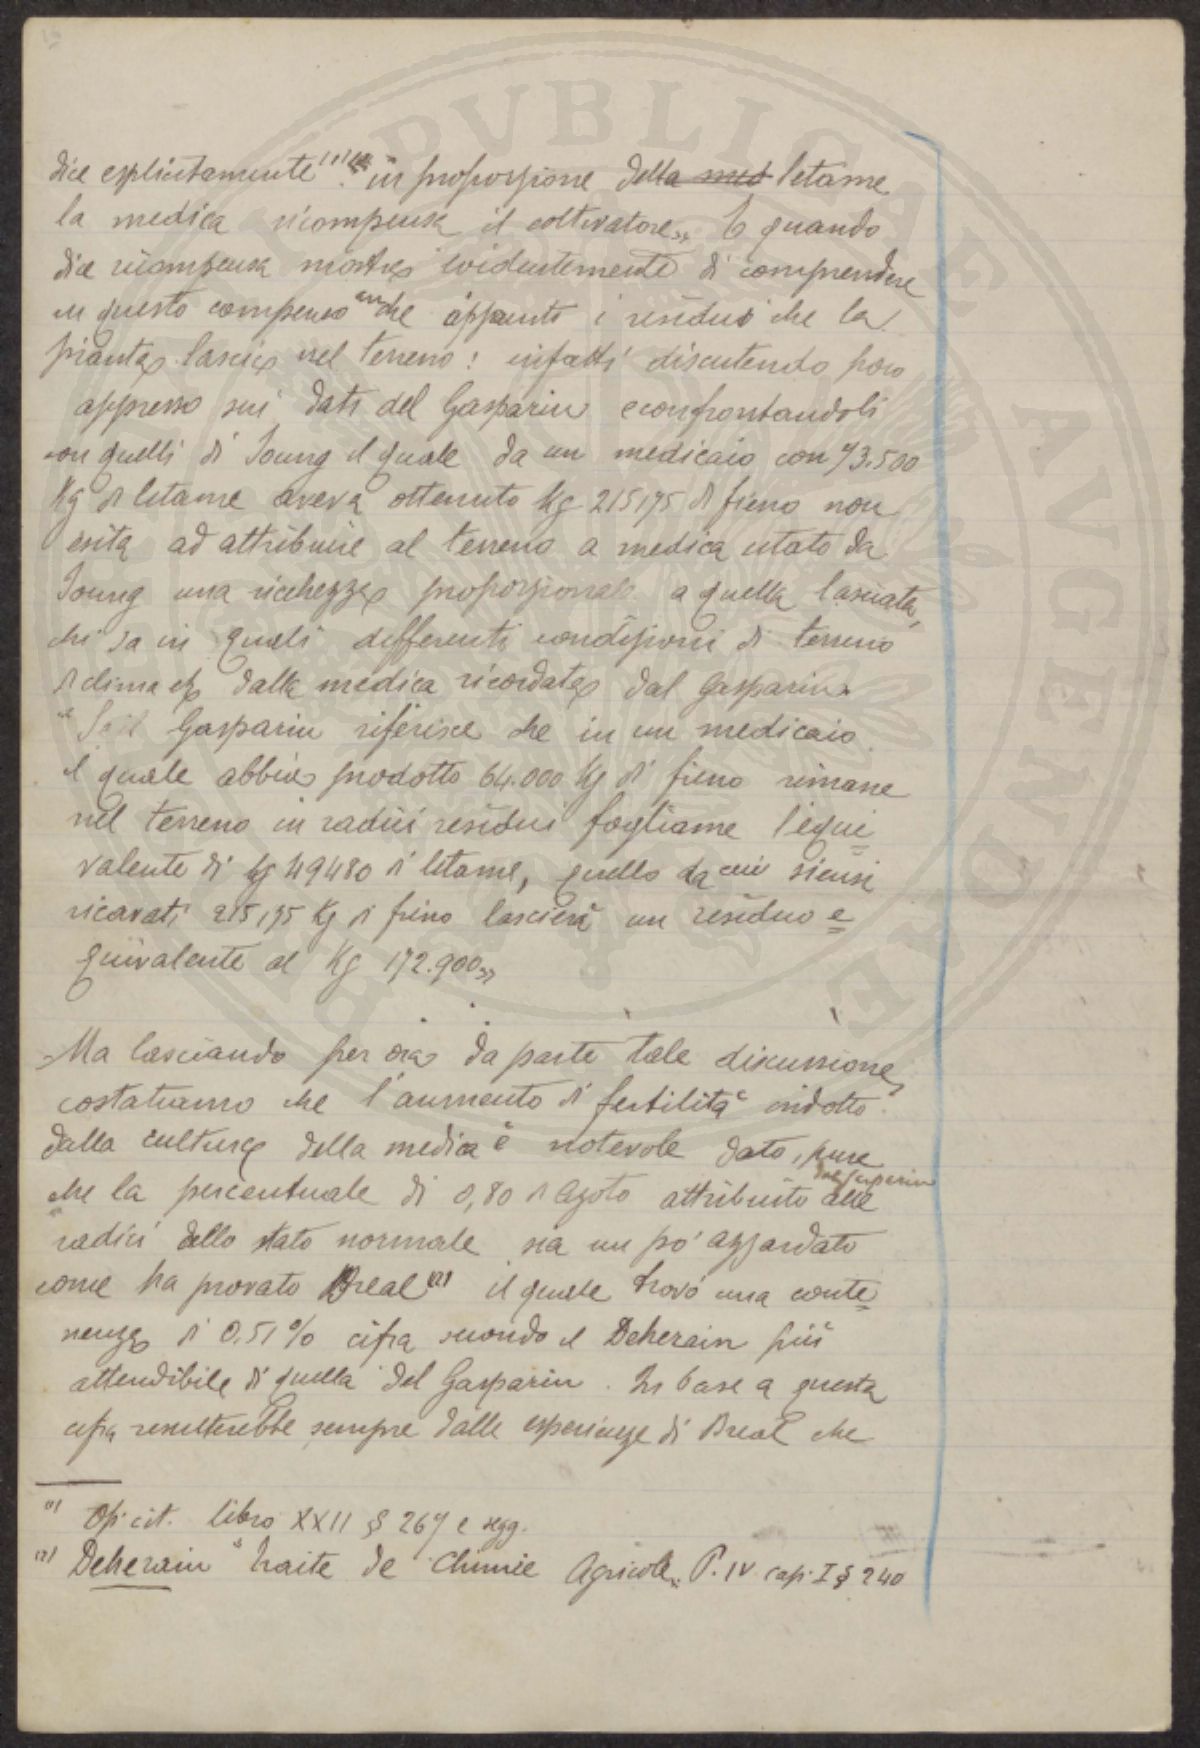 dice esplicitamente (1) "in proporzione della med letame
la medica ricompensa il coltivatore,, E quando
dice ricompensa mostra evidentemente di comprendere
in questo compenso anche appunto i residui che la
pianta lascia nel terreno: infatti discutendo poco
appresso sui dati del Gasparin e confrontandoli
con quelli di Joung il quale da un medicaio con 73.500
Kg di letame aveva ottenuto Kg 215175 di fieno non
esita ad attribuire al terreno a medica citato da
Joung una ricchezza proporzionale a quella lasciata,
chi sa in quali differenti condizioni di terreno
di clima etc dalla medica ricordata dal Gasparin.
"Se il Gasparin riferisce che in un medicaio
il quale abbia prodotto 64.000 Kg di fieno rimane
nel terreno in radici residui fogliame l'equi
valente di Kg 49480 di letame, quello da cui siensi
ricavati 215175 Kg di fieno lascierà un residuo e
quivalente a Kg 172.900,,
Ma lasciando per ora da parte tale discussione,
costatiamo che l'aumento di fertilità indotto
dalla cultura della medica è notevole dato, pure
dal Gasparin
che la percentuale di 0,80 di Azoto attribuito alle
radici dello stato normale sia un po' azzardato
come ha provato Breal (2) il quale trovò una conte
nenza di 0,51% cifra secondo il Deherain più
attendibile di quella del Gasparin. In base a questa
cifra resulterebbe sempre dalle esperienze di Breal che
(1) Op. cit. libro XXII § 267 e segg.
(2) Deherain "Traite de Chimie Agricole,, P. IV cap. I § 240
PVBLICAE AVGENDAE